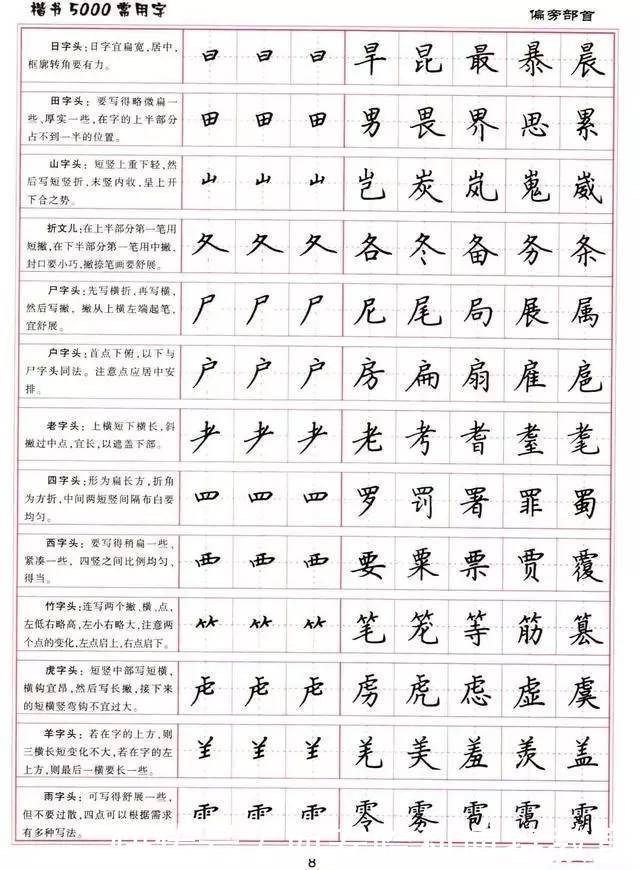 楷书5000常用字
偏旁部首
日字头：日字宜扁宽，居中，
框廓转角要有力。
日 日 日 旱 昆 最 暴 晨
田字头：要写得略微扁一
些，厚实一些，在字的上半部分
占不到一半的位置。
田 田 田 男 畏 界 思 累
山字头：短竖上重下轻，然
后写短竖折，末竖内收，呈上开
下合之势。
山 山 山 岂 炭 岚 嵬 崴
折文儿：在上半部分第一笔用
短撇，在下半部分第一笔用中撇，
封口要小巧，撇捺笔画要舒展。
夂 夂 夂 各 冬 备 务 条
尸字头：先写横折，再写横，
然后写撇，撇从上横左端起笔，
宜舒展。
尸 尸 尸 尼 尾 局 展 属
户字头：首点下俯，以下与
尸字头同法。注意点应居中安
排。
户 户 户 房 扁 扇 雇 扈
老字头：上横短下横长，斜
撇过中点，宜长，以遮盖下部。
耂 耂 耂 老 考 耆 耋 耄
四字头：形为扁长方，折角
为方折，中间两短竖间隔布白要
均匀。
罒 罒 罒 罗 罚 署 罪 蜀
西字头：要写得稍扁一些，
紧凑一些，四竖之间比例均匀、
得当。
覀 覀 覀 要 粟 票 贾 覆
竹字头：连写两个撇、横、点，
左低右略高，左小右略大，注意两
个点的变化，左点启上，右点启下。
⺮ ⺮ ⺮ 笔 笼 等 筋 篡
虎字头：短竖中部写短横，
横钩宜昂，然后写长撇，接下来
的短横竖弯钩不宜过大。
虍 虍 虍 虏 虎 虑 虚 虞
羊字头：若在字的上方，则
三横长短变化不大，若在字的左
上方，则最后一横要长一些。
⺷ ⺷ ⺷ 羌 美 羞 羡 盖
雨字头：可写得舒展一些，
但不要过散，四点可以根据需求
有多种写法。
⻗ ⻗ ⻗ 零 雾 雹 霭 霸
8